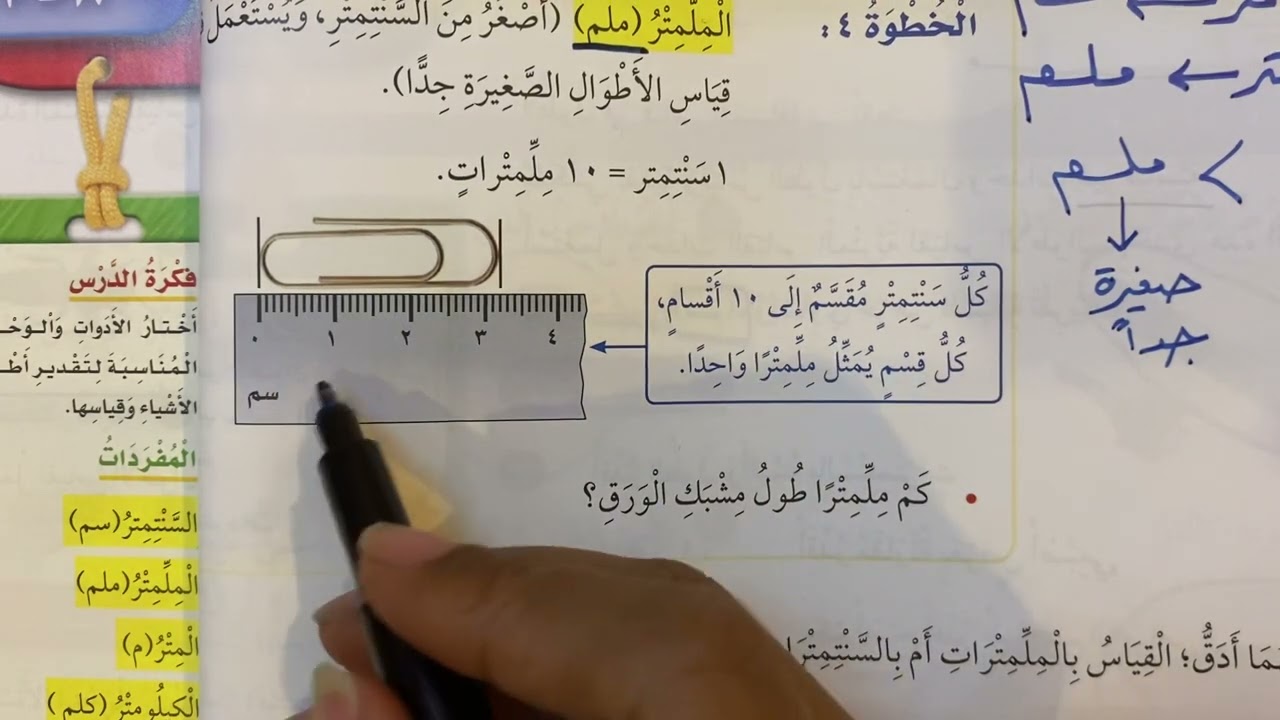 الْخُطْوَةُ ٤:
الْمِلِّمِتْرُ (ملم) (أَصْغَرُ مِنَ السَّنْتِمِتْرِ، وَيُسْتَعْمَلُ
قِيَاسِ الأَطْوَالِ الصَّغِيرَةِ جِدًّا).
١ سَنْتِمِتر = ١٠ مِلِّمِتْراتٍ.
٠ ١ ٢ ٣ ٤
سم
كُلُّ سَنْتِمِتْرٍ مُقَسَّمٌ إِلَى ١٠ أَقْسامٍ،
كُلُّ قِسْمٍ يُمَثِّلُ مِلِّمِتْرًا وَاحِدًا.
• كَمْ مِلِّمِتْرًا طُولُ مِشْبَكِ الْوَرَقِ؟
أَدَقُّ؛ الْقِيَاسُ بِالْمِلِّمِتْرَاتِ أَمْ بِالسَّنْتِمِتْرَا
← ملم
> ملم
↓
صغيرة
جداً
فِكْرَةُ الدَّرْسِ
أَخْتَارُ الأَدَواتِ وَالْوَحْـ
الْمُنَاسِبَةَ لِتَقْدِيرِ أَطْـ
الأَشْيَاءِ وَقِياسِها.
الْمُفْرَدَاتُ
السَّنْتِمِتْرُ (سم)
الْمِلِّمِتْرُ (ملم)
الْمِتْرُ (م)
الْكِيلُومِتْرُ (كلم)